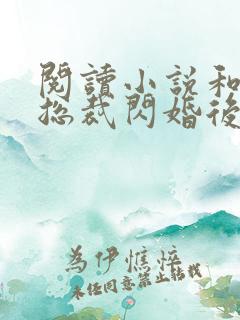 閱讀小說和
總裁閃婚後
為伊憔悴
未經同意禁止轉載